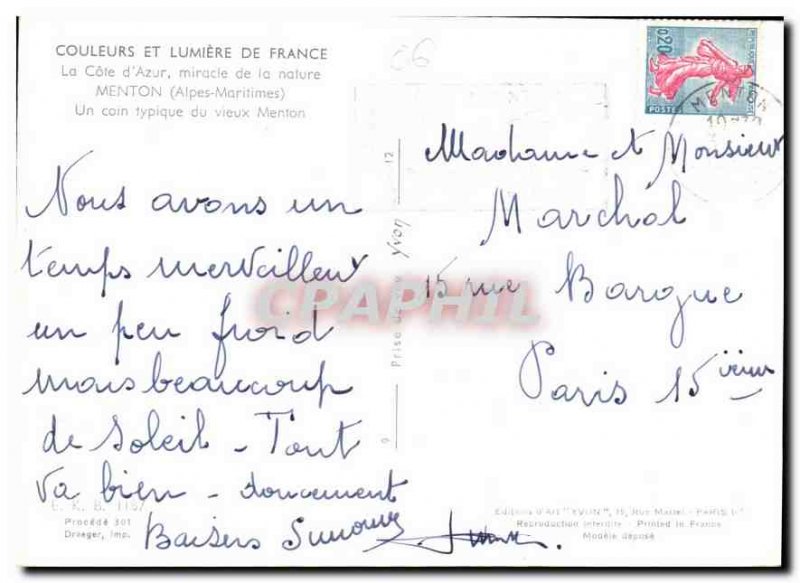 COULEURS ET LUMIÈRE DE FRANCE
La Côte d'Azur, miracle de la nature
MENTON (Alpes-Maritimes)
Un coin typique du vieux Menton
C6
Nous avons un
temps merveilleux
un peu froid
mais beaucoup
de soleil - Tout
va bien - doucement
Baisers
Procédé 301
Draeger, Imp.
Prise de vue Yvon
12
0,20
POSTES
MENTON
Madame et Monsieur
Marchal
15 rue Bargue
Paris 15 ième
Editions d'Art "YVON", 15, Rue Martel - PARIS
Reproduction interdite - Printed in France
Modèle déposé
CPAPHIL